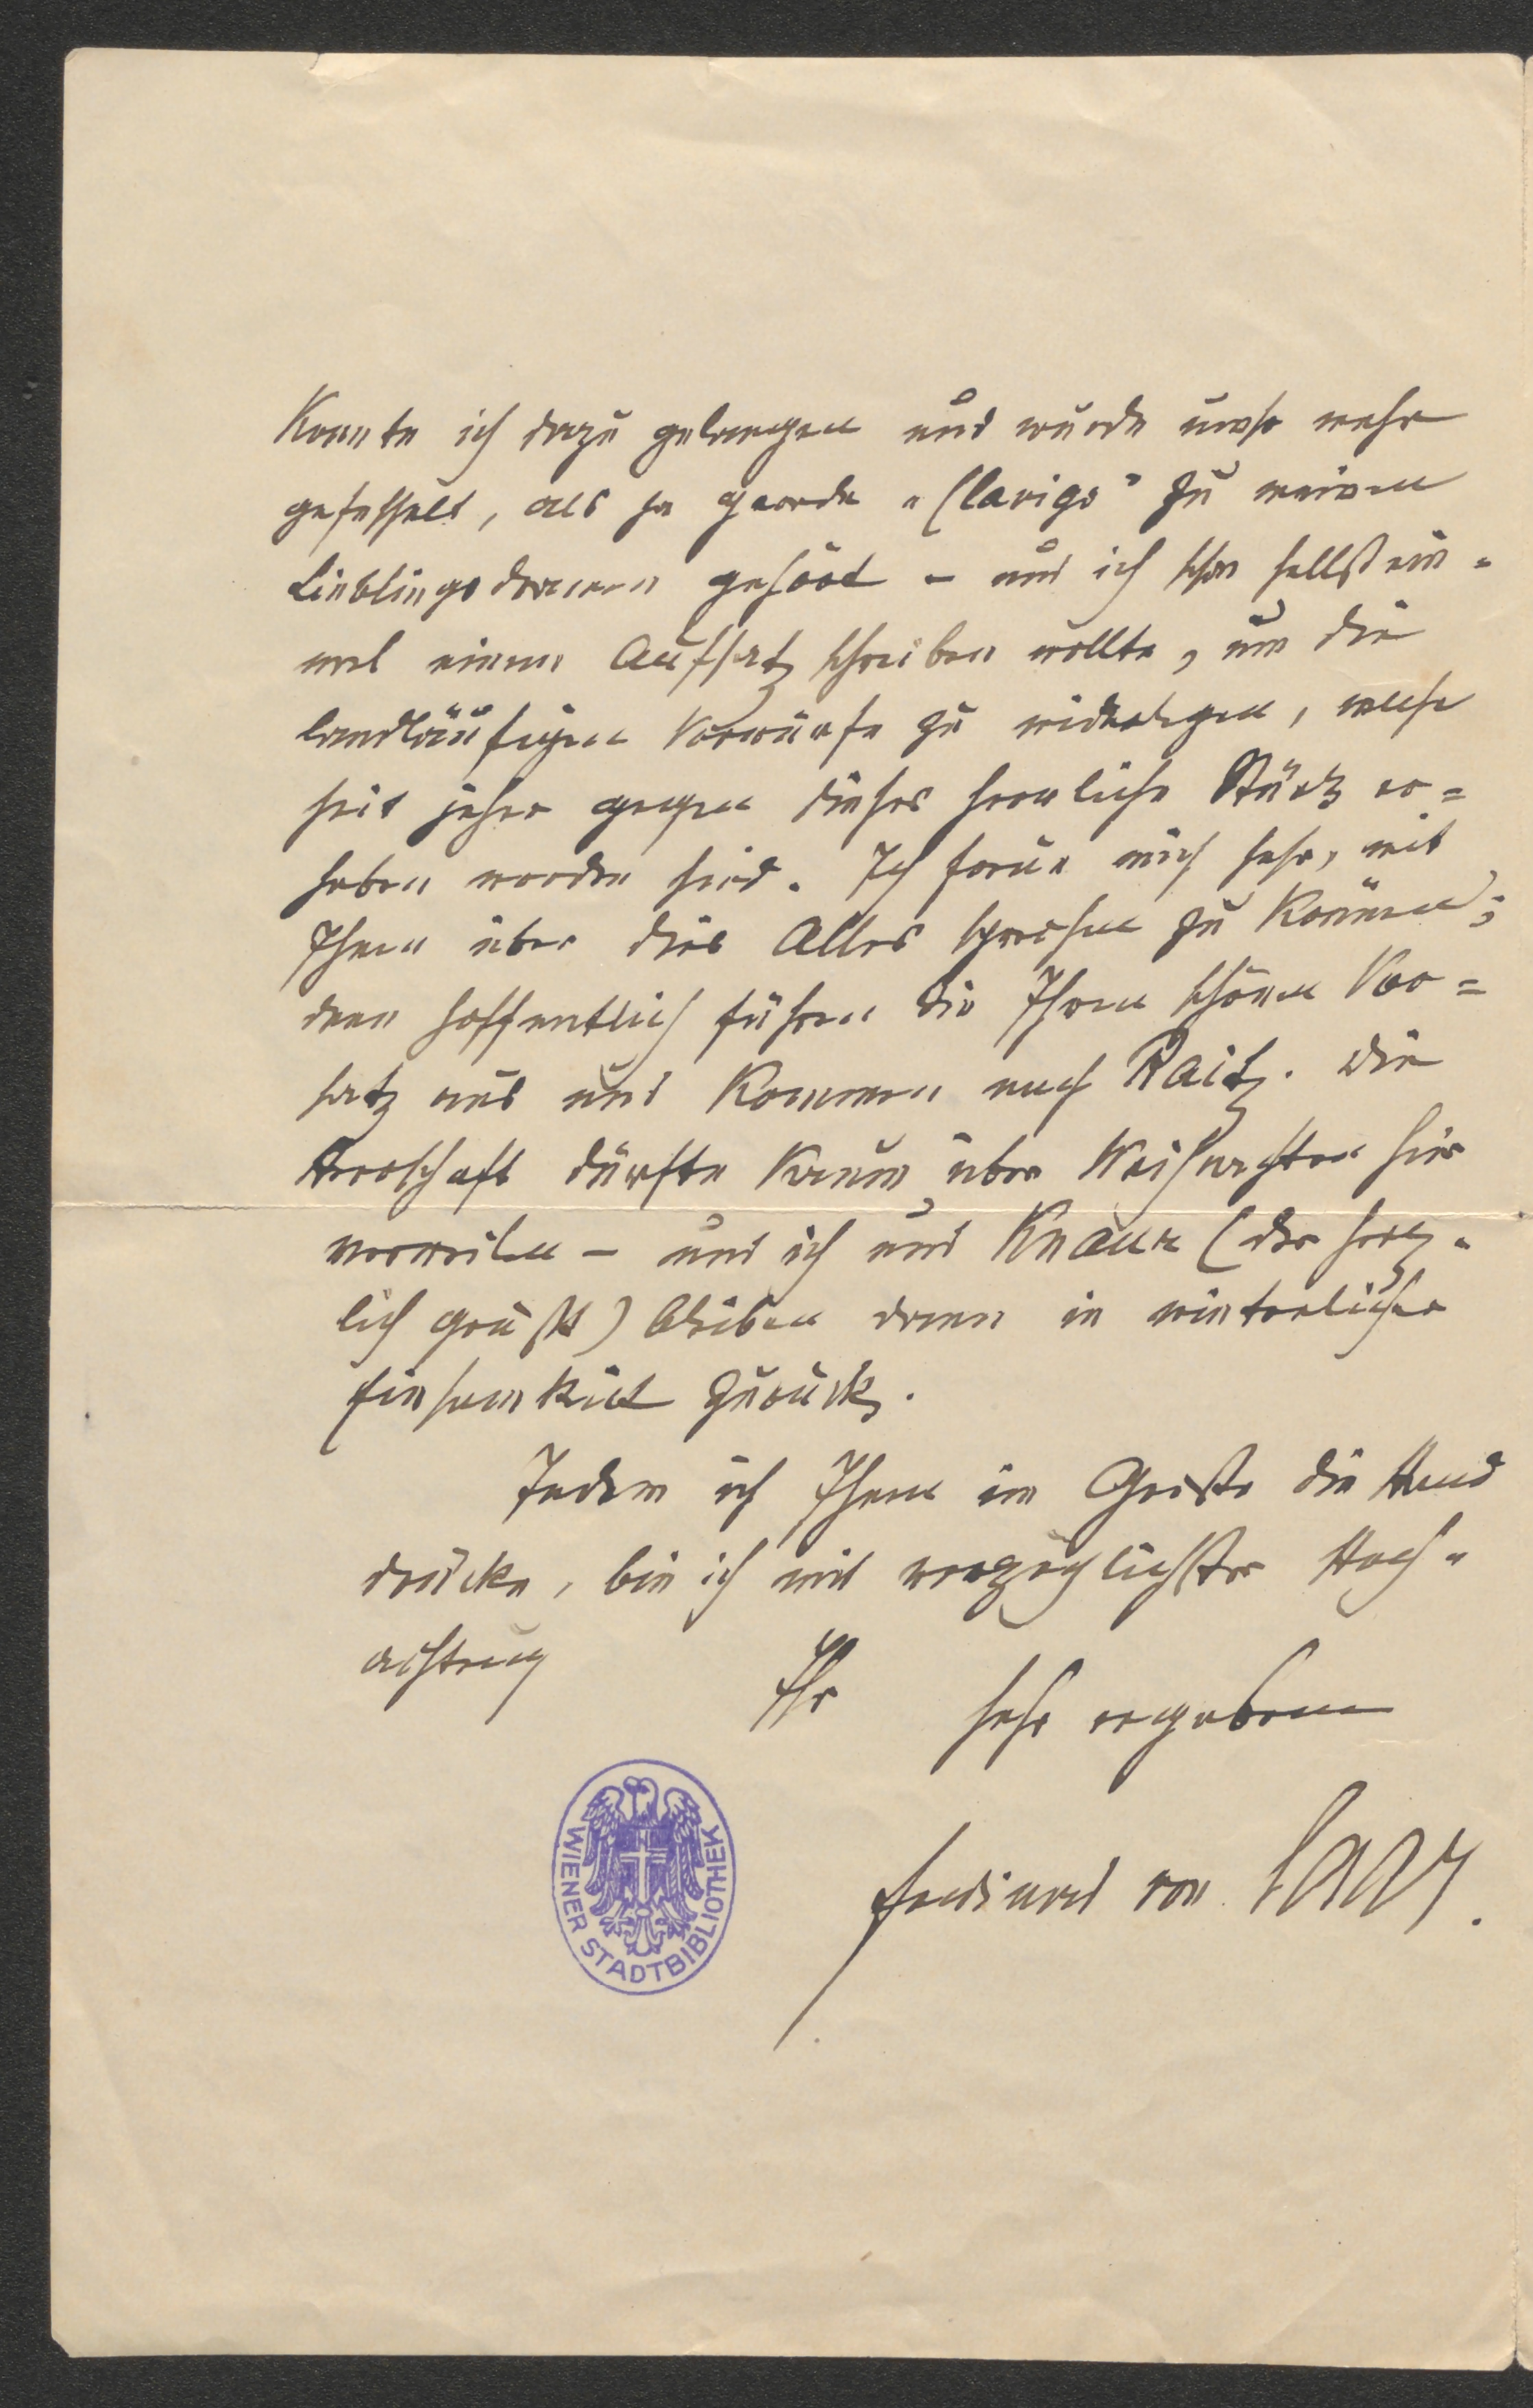 konnte ich dazu gelangen und wurde umso mehr
gefesselt, als ja gerade „Clavigo" zu meinen
Lieblingsdramen gehört – und ich schon selbst ein-
mal einen Aufsatz schreiben wollte, um die
landläufigen Vorwürfe zu widerlegen, welche
seit jeher gegen dieses herrliche Stück er=
hoben worden sind. Ich freue mich sehr, mit
Ihnen über dies Alles sprechen zu können;
denn hoffentlich führen Sie Ihren schönen Vor=
satz aus und kommen nach Raitz. Die
Herrschaft dürfte kaum über Weihnachten hier
verweilen – und ich und Knaur (der herz-
lich grüßt) bleiben dann in winterlicher
Einsamkeit zurück.
Indem ich Ihnen im Geiste die Hand
drücke, bin ich mit vorzüglichster Hoch-
achtung
Ihr sehr ergebener
Ferdinand von Saar.
WIENER STADTBIBLIOTHEK